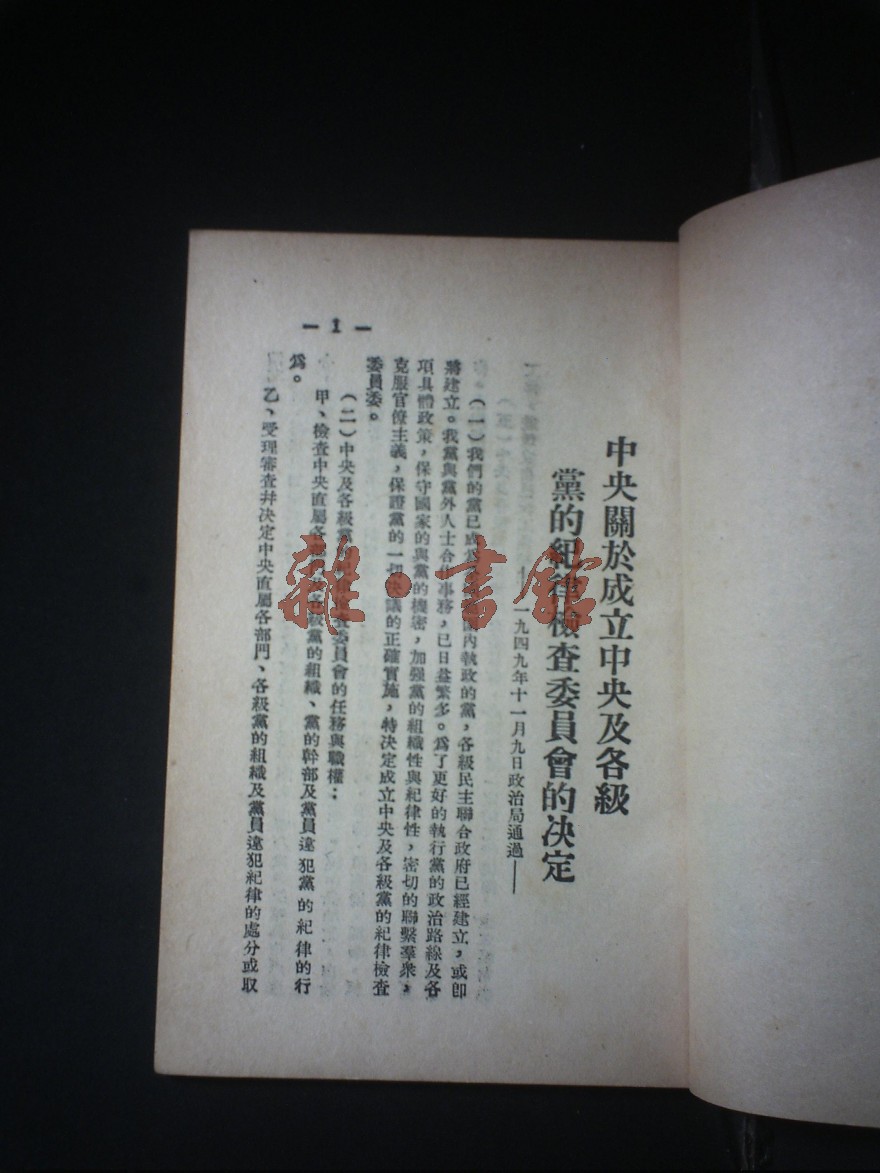 中央關於成立中央及各級
黨的紀律檢查委員會的决定
一九四九年十一月九日政治局通過——
（一）我們的黨已成爲國內執政的黨，各級民主聯合政府已經建立，或卽
將建立。我黨與黨外人士合作事務，已日益繁多。爲了更好的執行黨的政治路線及各
項具體政策，保守國家的與黨的機密，加强黨的組織性與紀律性，密切的聯繫羣衆，
克服官僚主義，保證黨的一切决議的正確實施，特决定成立中央及各級黨的紀律檢查
委員委。
（二）中央及各級黨的紀律檢查委員會的任務與職權：
甲、檢查中央直屬各部門及各級黨的組織、黨的幹部及黨員違犯黨的紀律的行
爲。
乙、受理審查并决定中央直屬各部門、各級黨的組織及黨員違犯紀律的處分或取
— 1 —
雜·書館